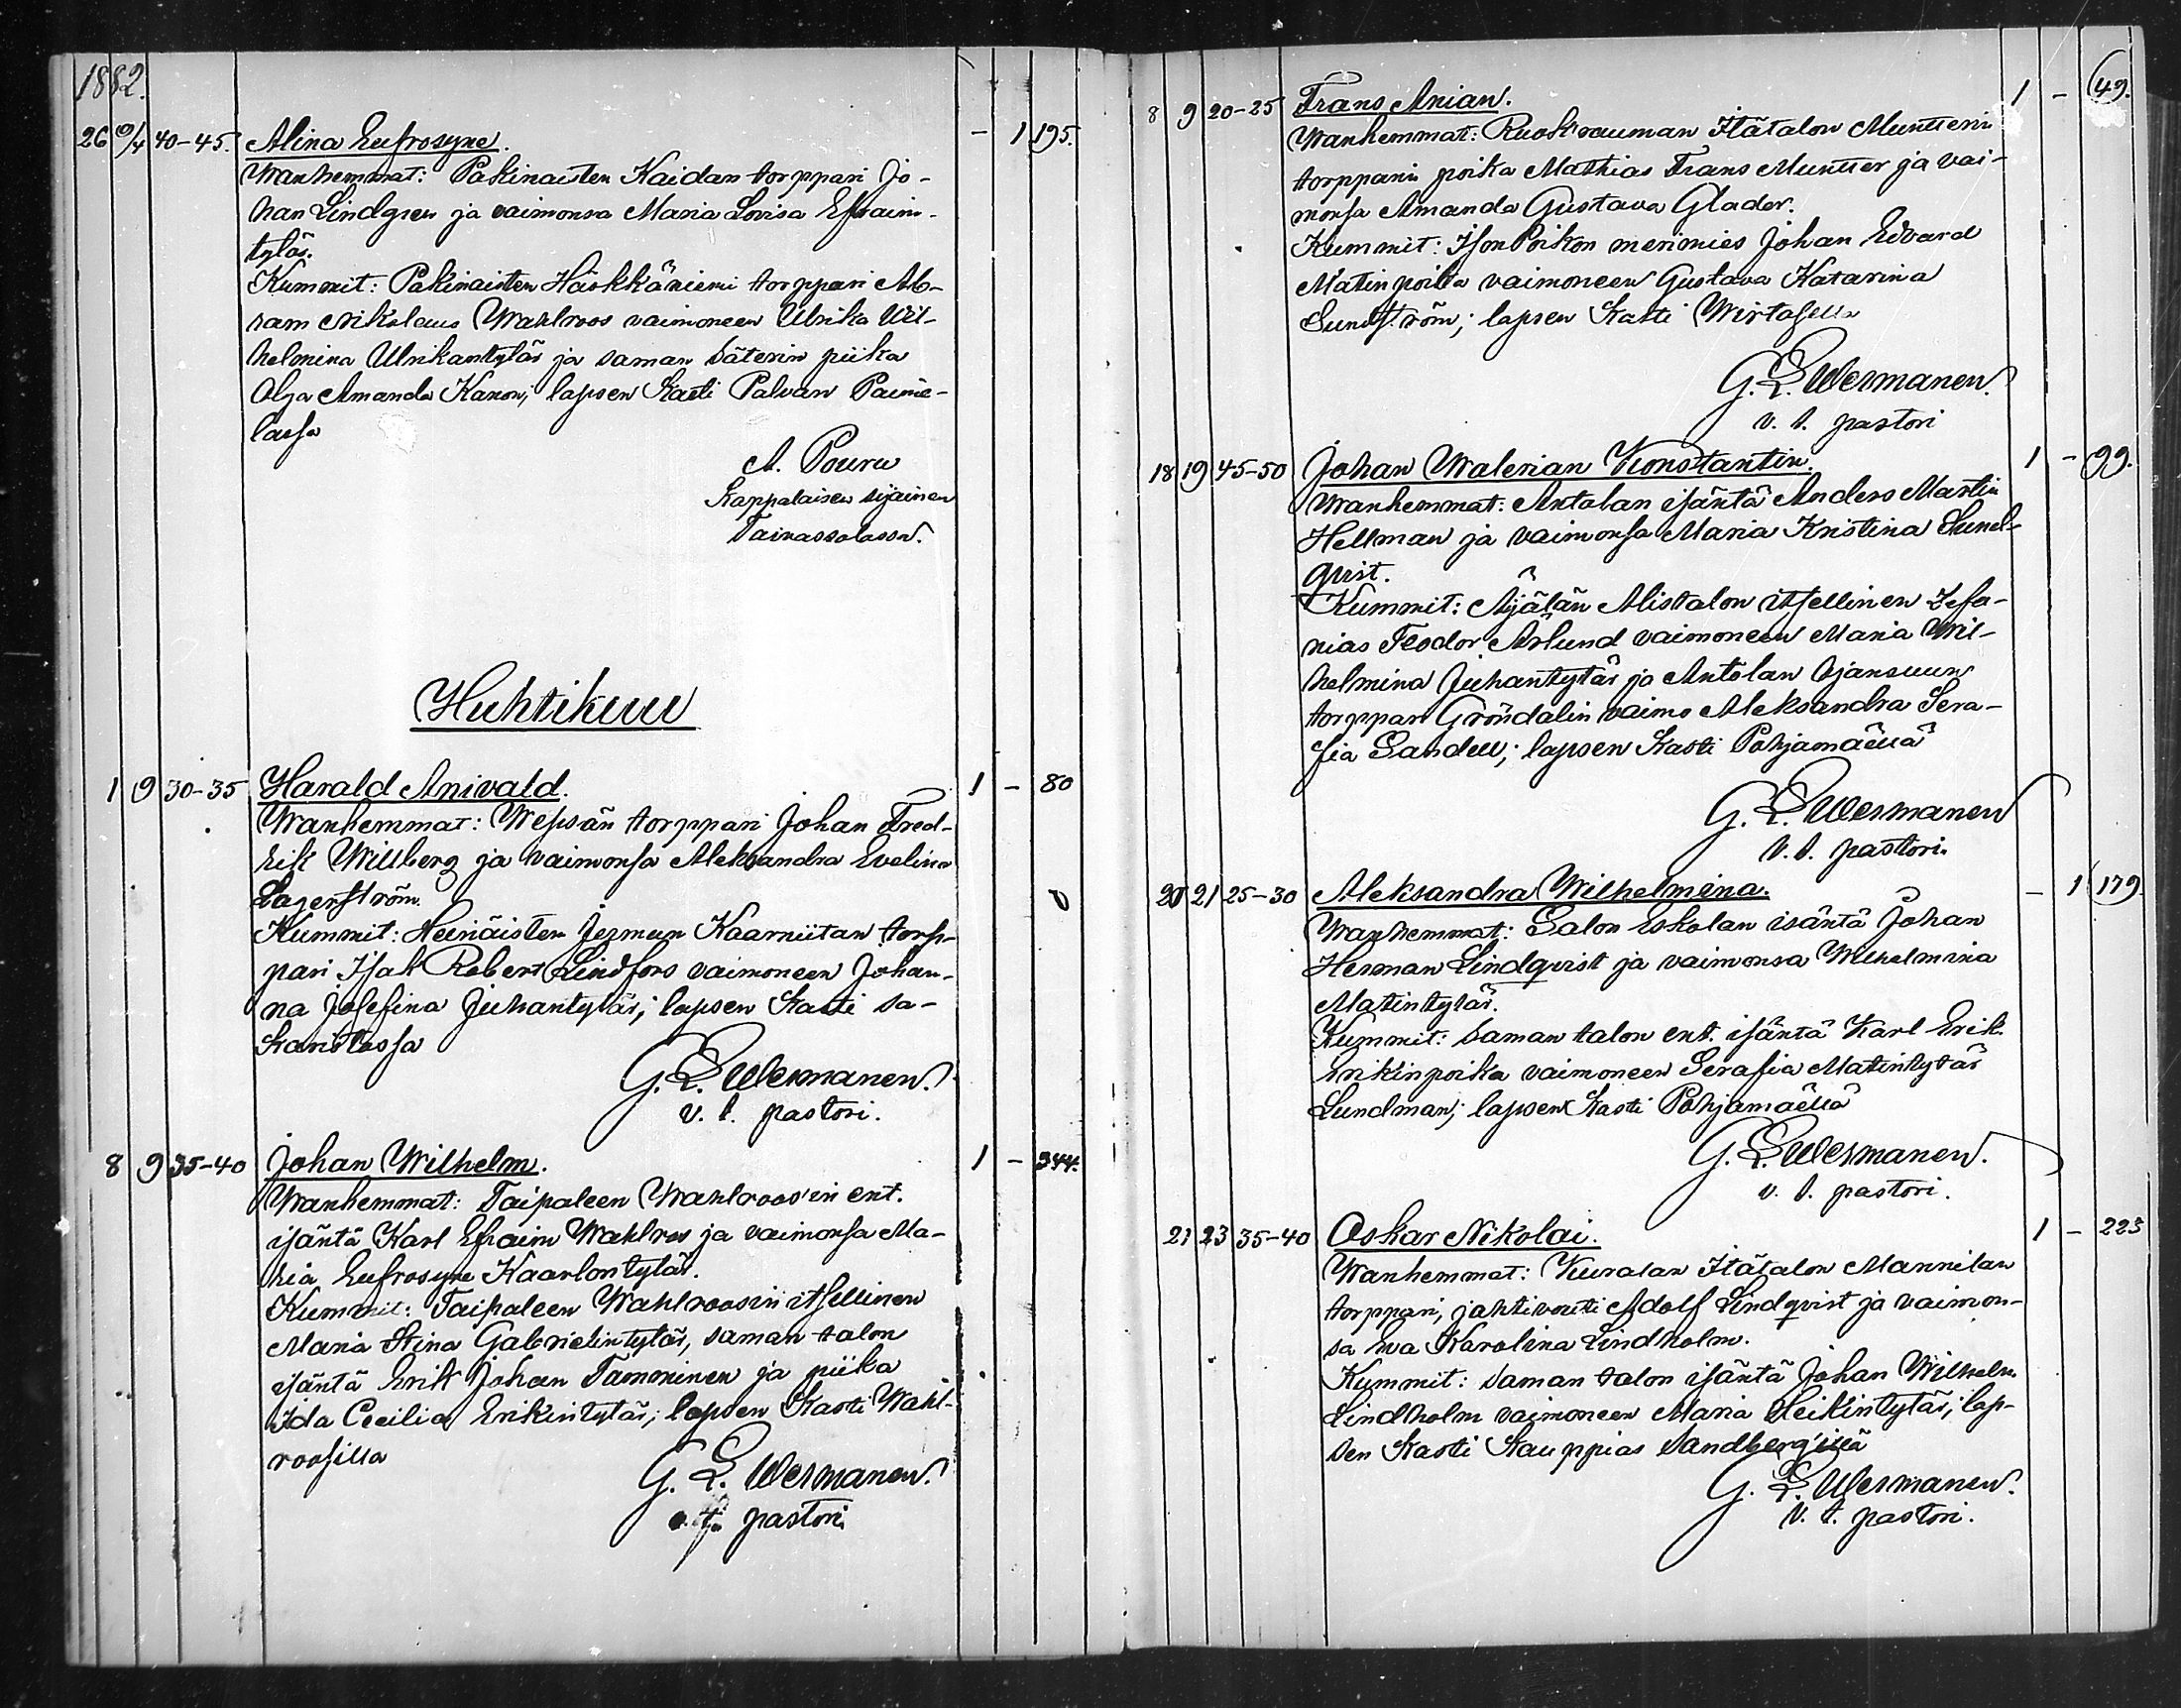 1882.
26 9/4 40-45. Alina Eufrosyne. - 1 195.
Wanhemmat: Pakinaisten Kaidan torppari Jo-
han Lindgren ja vaimonsa Maria Lovisa Efraim-
tytär.
Kummit: Pakinaisten Härkkäniemi torppari Ab-
ram Nikolaus Wahlroos vaimoneen Ulrika Wil-
helmina Ulrikantytär ja saman Säterin piika
Olga Amanda Karon; lapsen kasti Palvan
lassa
A. Pouru
Kappalaisen sijainen
Taivassalossa.
Huhtikuu
1 9 30-35 Harald Anivald. 1 - 80
Wanhemmat: Wepsän torppari Johan Fred-
rik Willberg ja vaimonsa Aleksandra Evelina
Lagerström.
Kummit: Heinäisten Jermun Kaarniitan torp-
pari Isak Robert Lindfors vaimoneen Johan-
na Josefina Juhantytär; lapsen kasti sa-
karistossa
G. L. Wermanen.
v. t. pastori.
8 9 35-40 Johan Wilhelm. 1 - 344.
Wanhemmat: Taipaleen Wahlroos'in ent.
isäntä Karl Efraim Wahlros ja vaimonsa Ma-
ria Eufrosyne Kaarlontytär.
Kummit: Taipaleen Wahlroosin itsellinen
Maria Stina Gabrielintytär, saman talon
isäntä Erik Johan Tamminen ja piika
Ida Cecilia Erikintytär; lapsen kasti Wahl-
roosilla
G. L. Wermanen.
v. t. pastori
8 9 20-25 Frans Anian. 1 - 49.
Wanhemmat: Ruokrauman Itätalon Muntterin
torpparin poika Mathias Frans Muntter ja vai-
monsa Amanda Gustava Glader.
Kummit: Ison Poikon merimies Johan Edvard
Matinpoika vaimoneen Gustava Katarina
Sundström; lapsen kasti Wirtasella
G. L. Wermanen.
v. t. pastori
18 19 45-50 Johan Walerian Konstantin. 1 - 99.
Wanhemmat: Antolan isäntä Anders Martin
Hellman ja vaimonsa Maria Kristina Sund-
qvist.
Kummit: Äijälän Alistalon itsellinen Zefa-
nias Feodor Aslund vaimoneen Maria Wil-
helmina Juhantytär ja Antolan Ojansuun
torppari Gröndalin vaimo Aleksandra Sera-
fia Sandell; lapsen kasti Pohjamäellä
G. L. Wermanen
v. t. pastori.
20 21 25-30 Aleksandra Wilhelmina. - 1 179.
Wanhemmat: Salon Eskolan isäntä Johan
Herman Lindqvist ja vaimonsa Wilhelmina
Matintytär.
Kummit: saman talon ent. isäntä Karl Erik
Erikinpoika vaimoneen Serafia Matintytär
Lundman; lapsen kasti Pohjamäellä
G. L. Wermanen.
v. t. pastori.
21 23 35-40 Oskar Nikolai. 1 - 223
Wanhemmat: Kuralan Itätalon Mannilan
torppari, jahtivouti Adolf Lindqvist ja vaimon-
sa Eva Karolina Lindholm.
Kummit: saman talon isäntä Johan Wilhelm
Lindholm vaimoneen Maria Heikintytär; lap-
sen kasti kauppias Sandberg'illä
G. L. Wermanen.
v. t. pastori.